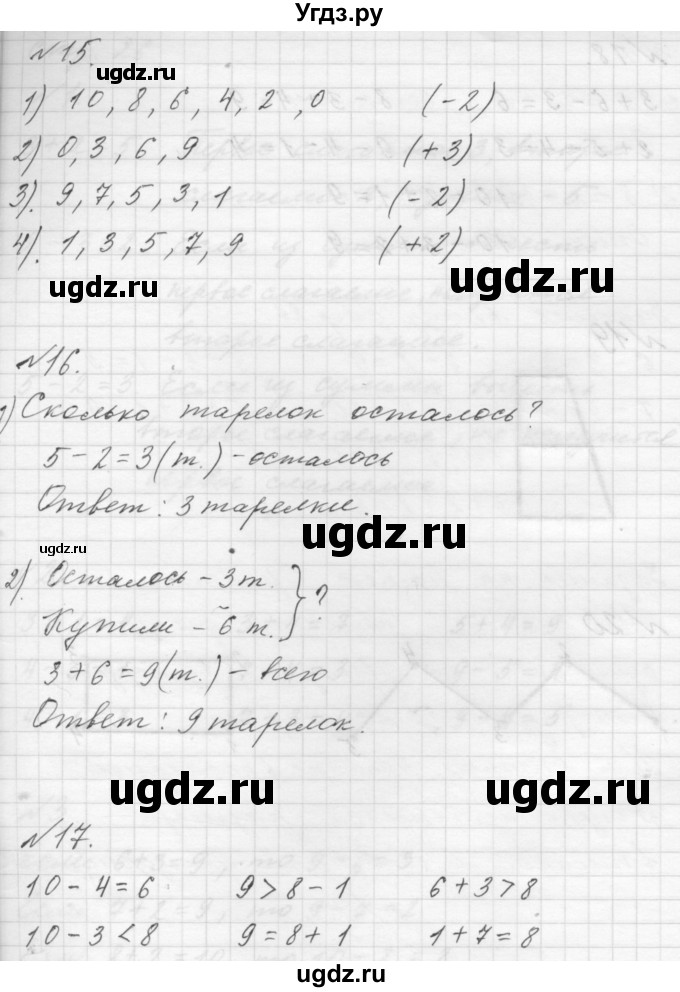 Угдз.ру
№15.
ugdz.ru
1) 10, 8, 6, 4, 2, 0 (-2)
2) 0, 3, 6, 9 (+3)
3). 9, 7, 5, 3, 1 (-2)
4). 1, 3, 5, 7, 9 (+2)
ugdz.ru
ugdz.ru
№16.
1) Сколько тарелок осталось?
5 - 2 = 3 (т.) - осталось
Ответ: 3 тарелки.
ugdz.ru
ugdz.ru
2). Осталось - 3 т. } ?
Купили - 6 т.
3 + 6 = 9 (т.) - всего
Ответ: 9 тарелок.
ugdz.ru
ugdz.ru
№17.
10 - 4 = 6 9 > 8 - 1 6 + 3 > 8
10 - 3 < 8 9 = 8 + 1 1 + 7 = 8
ugdz.ru